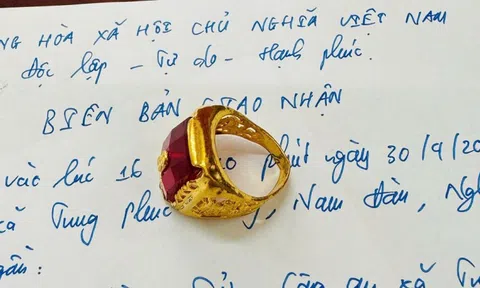 NG HÒA XÃ HỘI CHỦ NGHĨA VIỆT NAM
Độc lập - Tự do - Hạnh phúc.
BIÊN BẢN GIAO NHẬN
vào lúc 16 phút ngày 30/9/20
xã Tung phúc Nam Đàn, Ngh
gồm:
Công an xã